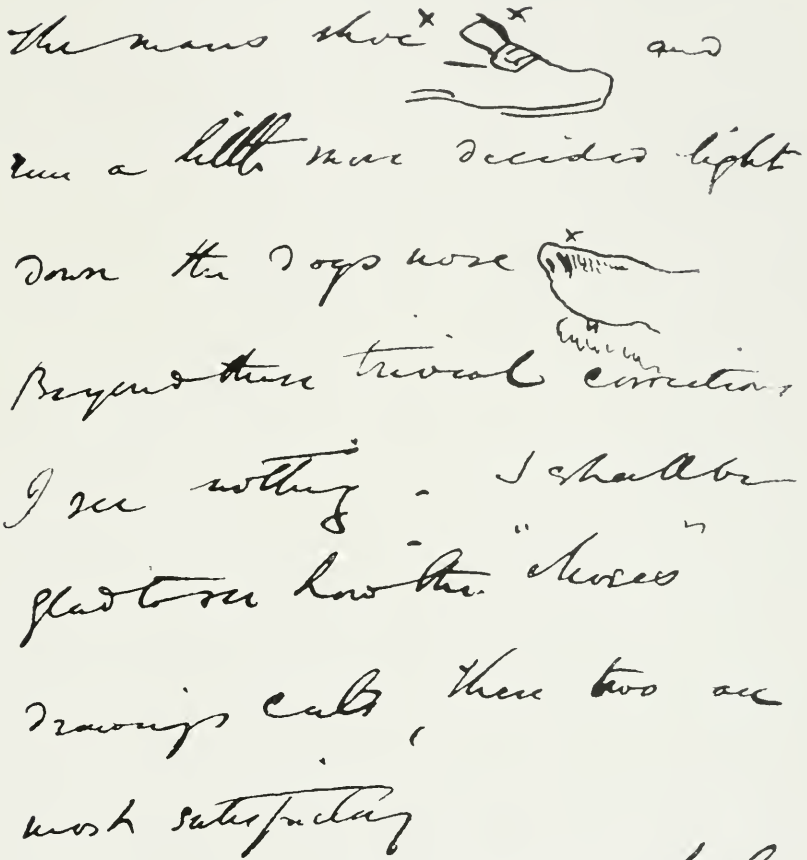 The mans shoe x x and
run a little more decided light
down the dogs nose x
Beyond these trivial corrections
I see nothing. I shall be
glad to see how the
drawings cuts, these two are
most satisfactory